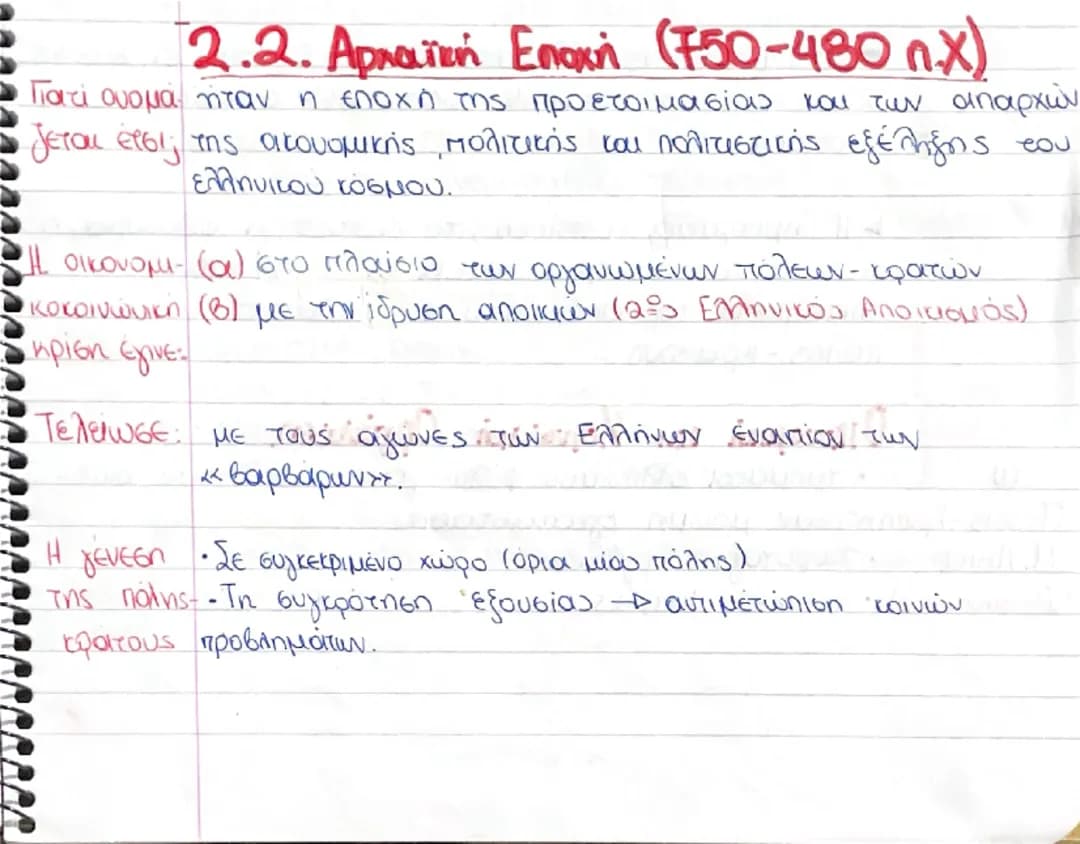 2.2. Αρχαϊκή Εποχή (750-480 π.Χ)
Γιατί ονομά ήταν η εποχή της προετοιμασίας και των απαρχών
ζεται έτσι; της οικονομικής, πολιτικής και πολιτιστικής εξέληξης του
ελληνικού κόσμου.
Η οικονομι- (α) στο πλαίσιο των οργανωμένων πόλεων-κρατών
κοκοινωνική (β) με την ίδρυση αποικιών (2ος Ελληνικός Αποικισμός)
κρίση έγινε:
Τελείωσε: με τους αγώνες των Ελλήνων έναντίον των
«βαρβάρων».
Η γένεση · Σε συγκεκριμένο χώρο (όρια μιας πόλης)
της πόλης- · Τη συγκρότηση εξουσίας → αντιμετώπιση κοινών
κράτους προβλημάτων.